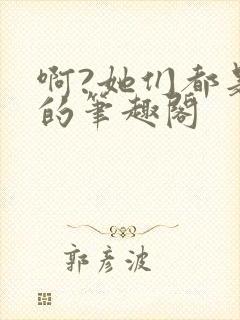 啊?她们都是
的笔趣阁
郭彦波